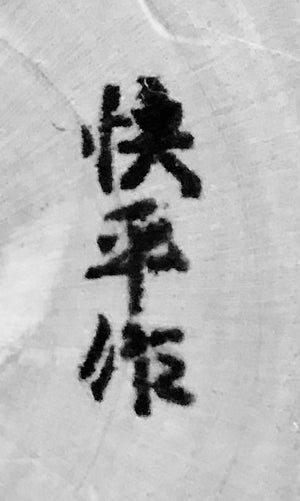 快平作